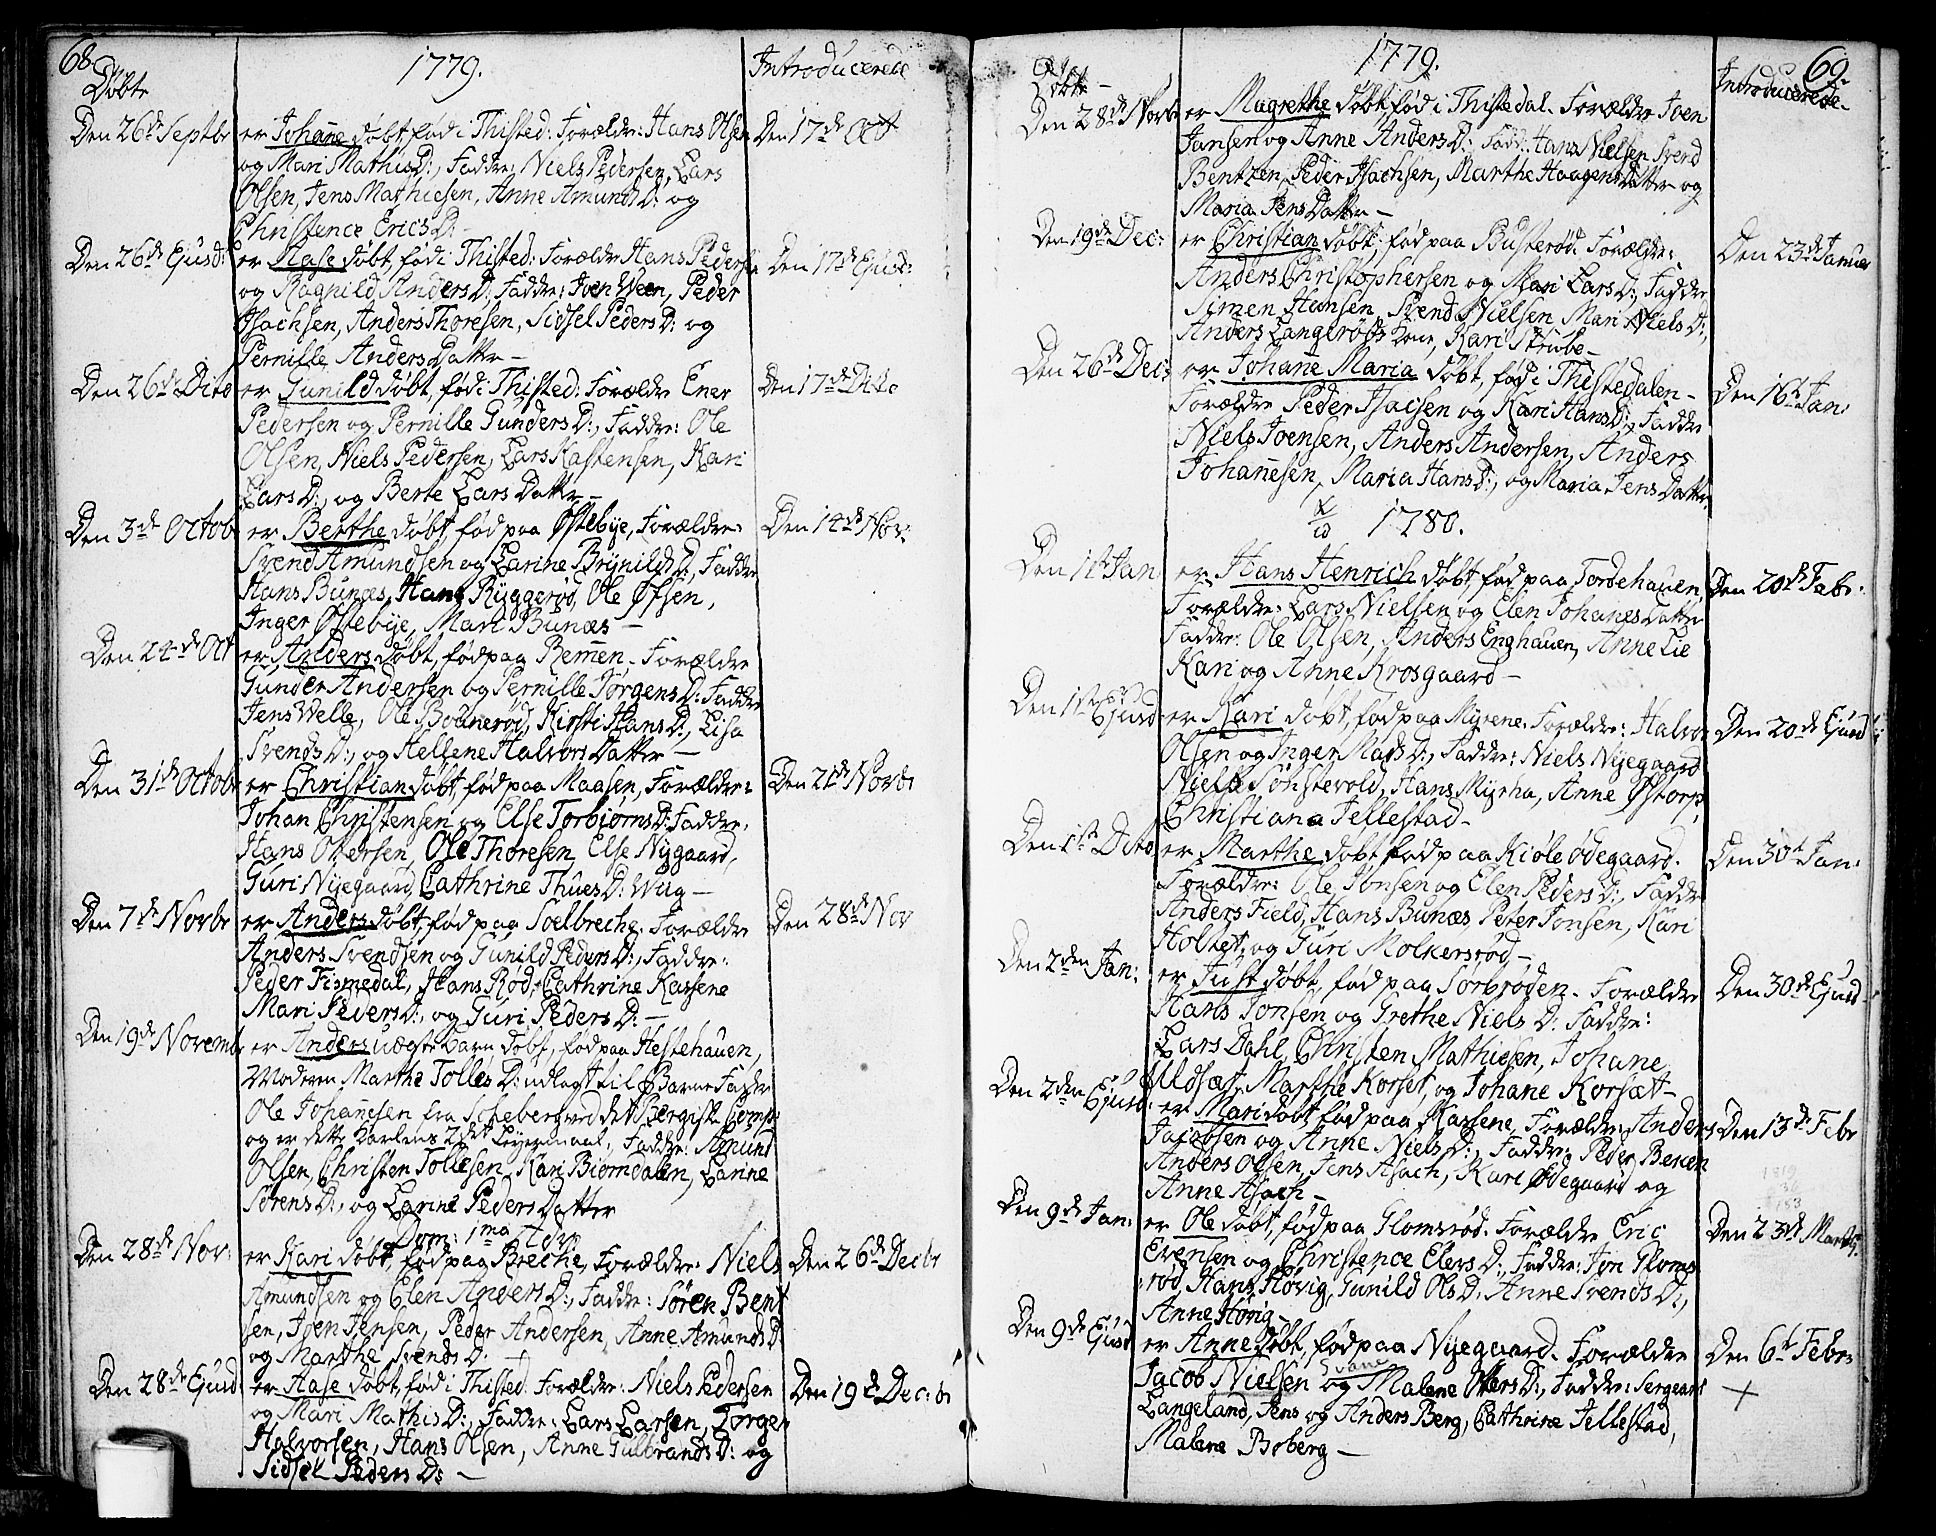 68.
Døbte
1779.
Introducerede
Den 26de Septbr er Johañe døbt, fød i Thisted: Forældre: Hans Olsen Den 17de Oct
og Mari MathisD:, Faddre: Niels Pedersen, Lars
Olsen, Jens Mathiesen, Anne AmundsD: og
Christence EricsD:
Den 26de Ejusd: er Aase døbt, fød i Thisted: Forældre Hans Pedersen Den 17de Ejusd:
og Ragnild AndersD: Faddre: Iven Ween, Peder
Isachsen, Anders Thoresen, Sidsel PedersD: og
Pernille Anders Dattr —
Den 26de Dito er Gunild døbt, fød i Thisted: Forældre Ener Den 17de Dito
Pedersen og Pernille GundersD:, Faddre: Ole
Olsen, Niels Pedersen, Lars Kastensen, Kari
LarsD:, og Berte Lars Dattr —
Den 3de Octob er Berthe døbt, fød paa Østebye, Forældre: Den 14de Nov:
Svend Amundsen og Larine BrynildsD:, Faddre
Hans Bunæs, Hans Ryggerød, Ole Ofsen,
Inger Østebye, Mari Bunæs —
Den 24de Oct er Anders døbt, fød paa Remen. Forældre
Gunder Andersen og Pernille JørgensD: Faddre
Jens Welle, Ole Bounerød, Kirsti HansD:, Lisa
SvendsD:, og Hellene Halvors Datter —
Den 31de Octobr er Christian døbt, fød paa Maasen, Forældre: Den 21de Novbr
Johan Christensen og Else TorbiørnsD: Faddre,
Hans Olersen, Ole Thoresen, Else Nygaard,
Guri Nyegaard, Cathrine ThuesD: Wug —
Den 7de Novbr er Anders døbt, fød paa Soelbreche. Forældre Den 28de Nov
Anders Svendsen og Gunild PedersD:, Faddre:
Peder Fismedal, Hans Rød, Cathrine Kassene
Mari PedersD:, og Guri PedersD: —
Den 19de Novembr er Anders uægte barn døbt, fød paa Hestehauen,
Moderen Marthe TollesD: udlagt til Barne Fader
Ole Johañesen fra Scheberg ved det Bergiske Comp:
og er dette Karlens 2det Leyermaal, Faddre: Amund
Olsen, Christen Tollesen, Kari Biørndalen, Larine
SørensD:, og Larine Peders Datter
Dom: 1ma Adv:
Den 28de Nov: er Kari døbt, fød paa Breche, Forældre: Niels Den 26de Decbr
Amundsen og Elen AndersD:, Faddre: Søren Bent
sen, Iven Jensen, Peder Andersen, Anne AmundsD
og Marthe SvendsD:
Den 28de Ejusd er Aase døbt, fød i Thisted. Forældre: Niels Pedersen Den 19de Dec:br
og Mari MathisD:, Faddre: Lars Larsen, Torger
Halvorsen, Hans Olsen, Anne GulbrandsD: og
Sidsel PedersD: —
69.
Døbte —
1779.
Introducerede
Den 28de Novbr er Magrethe døbt, fød i Thistedal. Forældre Iven
Jansen og Anne AndersD: Fadd: Hans Nielsen, Svend
Bentzen, Peder Isachsen, Marthe Haagens Datter og
Maria Jens Datter —
Den 19de Dec: er Christian døbt, fød paa Busterød. Forældre: Den 23de Januar
Anders Christophersen og Mari LarsD:, Faddre
Simen Hansen, Svend Nielsen, Mari NielsD:,
Anders Langerøds Kone, Kari Strube —
Den 26de Dec: er Johañe Maria døbt, fød i Thistedalen — Den 16de Jan:
Forældre Peder Isacsen og Kari HansD:, Faddre
Niels Ivensen, Anders Andersen, Anders
Johañesen, Maria HansD:, og Maria Jens Dattr.
1780.
Den 1st Jan er Hans Henrich døbt, fød paa Tordehauen, Den 20de Febr:
Forældre: Lars Nielsen og Elen Johañes Datter
Faddre: Ole Olsen, Anders Enghauen, Anne Lie
Kari og Anne Krosgaard —
Den 1st Ejusd er Kari døbt, fød paa Myrene. Forældre: Halvor Den 20de Ejusd
Olsen og Inger MadsD:, Faddre: Niels Nyegaard
Niels Sønstevold, Hans Myrha, Anne Østorp,
Christiana Tellestad —
Den 1st Dito er Marthe døbt fød paa Kiøle Ødegaard. Den 30te Jan:
Forældre: Ole Jonsen og Elen PedersD:, Faddre
Anders Field, Hans Bunæs, Peter Jonsen, Kari
Holtet, og Guri Molkersrød —
Den 2den Jan: er Just døbt, fød paa Sørbrøden. Forældre Den 30de Ejusd
Hans Jonsen og Grethe NielsD: Faddre:
Lars Dahl, Christen Mathiesen, Johane
Uldsæt, Marthe Korset, og Johane Korsæt —
Den 2den Ejusd: er Mari døbt, fød paa Kassene, Forældre: Anders Den 13de Febr
Jacobsen og Anne NielsD:, Faddre: Peder Berken
Anders Olsen, Jens Asach, Kari Ødegaard og
Anne Asach —
Den 9de Jan: er Ole døbt, fød paa Glomsrød. Forældre Eric Den 23de Marti
Evensen og Christence ElersD:, Faddre: Jon Gloms
rød, Hans Høvig, Gunild OlsD, Anne SvendsD:,
Anne Høvig —
Den 9de Ejusd er Anne døbt, fød paa Nyegaard. Forældre Den 6te Febr
Jacob Nielsen Svane og Malene OlersD:, Faddre: Sergeant +
Langeland, Jens og Anders Berg, Cathrine Tellestad,
Malene Boberg —